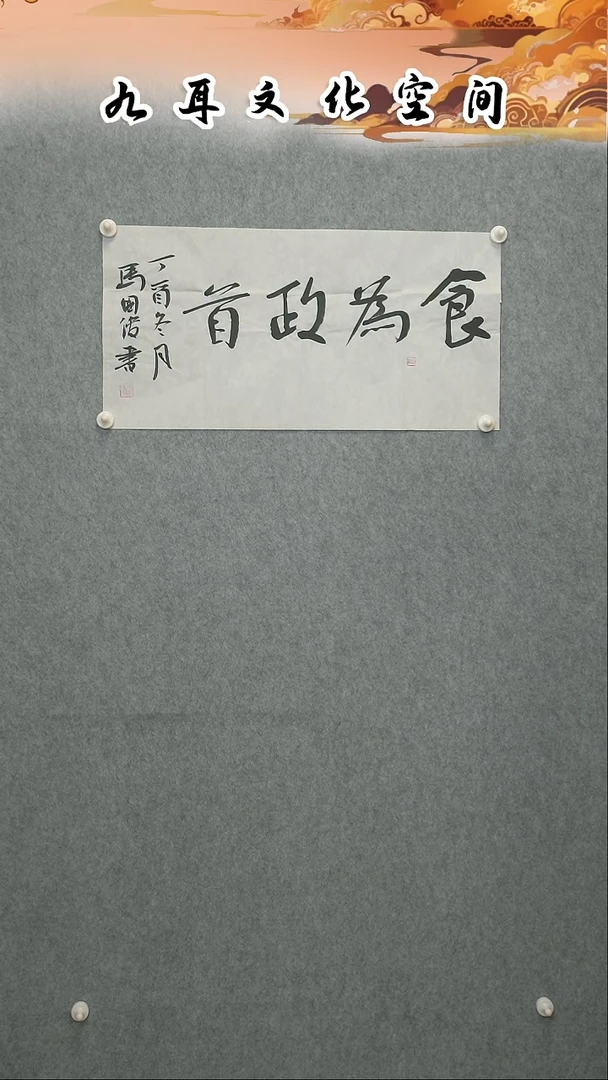 九耳文化空间
食為政首
丁酉冬月
馬國俊書